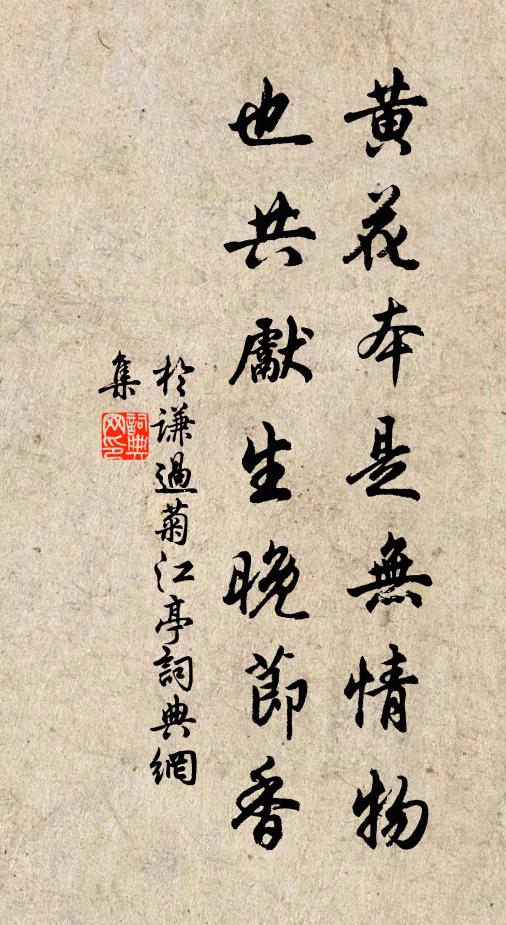 黃花本是無情物
也共獻生晚節香
於謙過菊江亭詞典網
集
詞典
网印